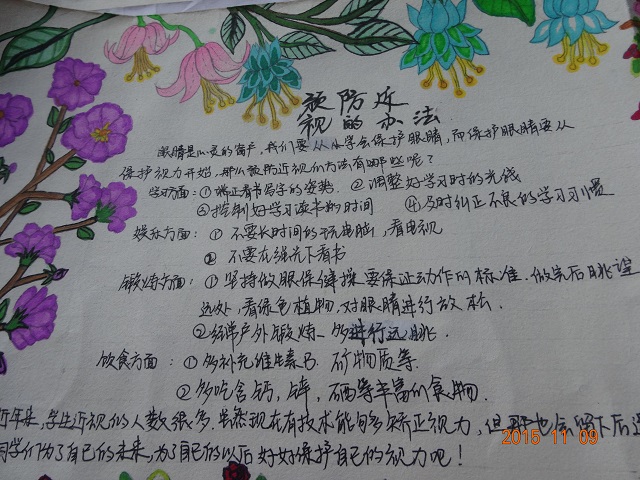 预防近
视的办法
眼睛是心灵的窗户,我们要从小学会保护眼睛,而保护眼睛要从
保护视力开始,那么预防近视的方法有哪些呢?
学习方面:①矫正看书写字的姿势. ②调整好学习时的光线
③控制好学习读书的时间 ④及时纠正不良的学习习惯
娱乐方面:① 不要长时间的玩电脑,看电视
② 不要在强光下看书
锻炼方面:①坚持做眼保健操要保证动作的标准.做完后眺望
远处,看绿色植物,对眼睛进行放松.
②经常户外锻炼.多进行远眺.
饮食方面:①多补充维生素B.矿物质等.
②多吃含钙,锌,硒等丰富的食物.
近年来,学生近视的人数很多.虽然现在有技术能够矫正视力,但那也会留下后
同学们为了自己的未来,为了自己的以后好好保护自己的视力吧!
2015 11 09